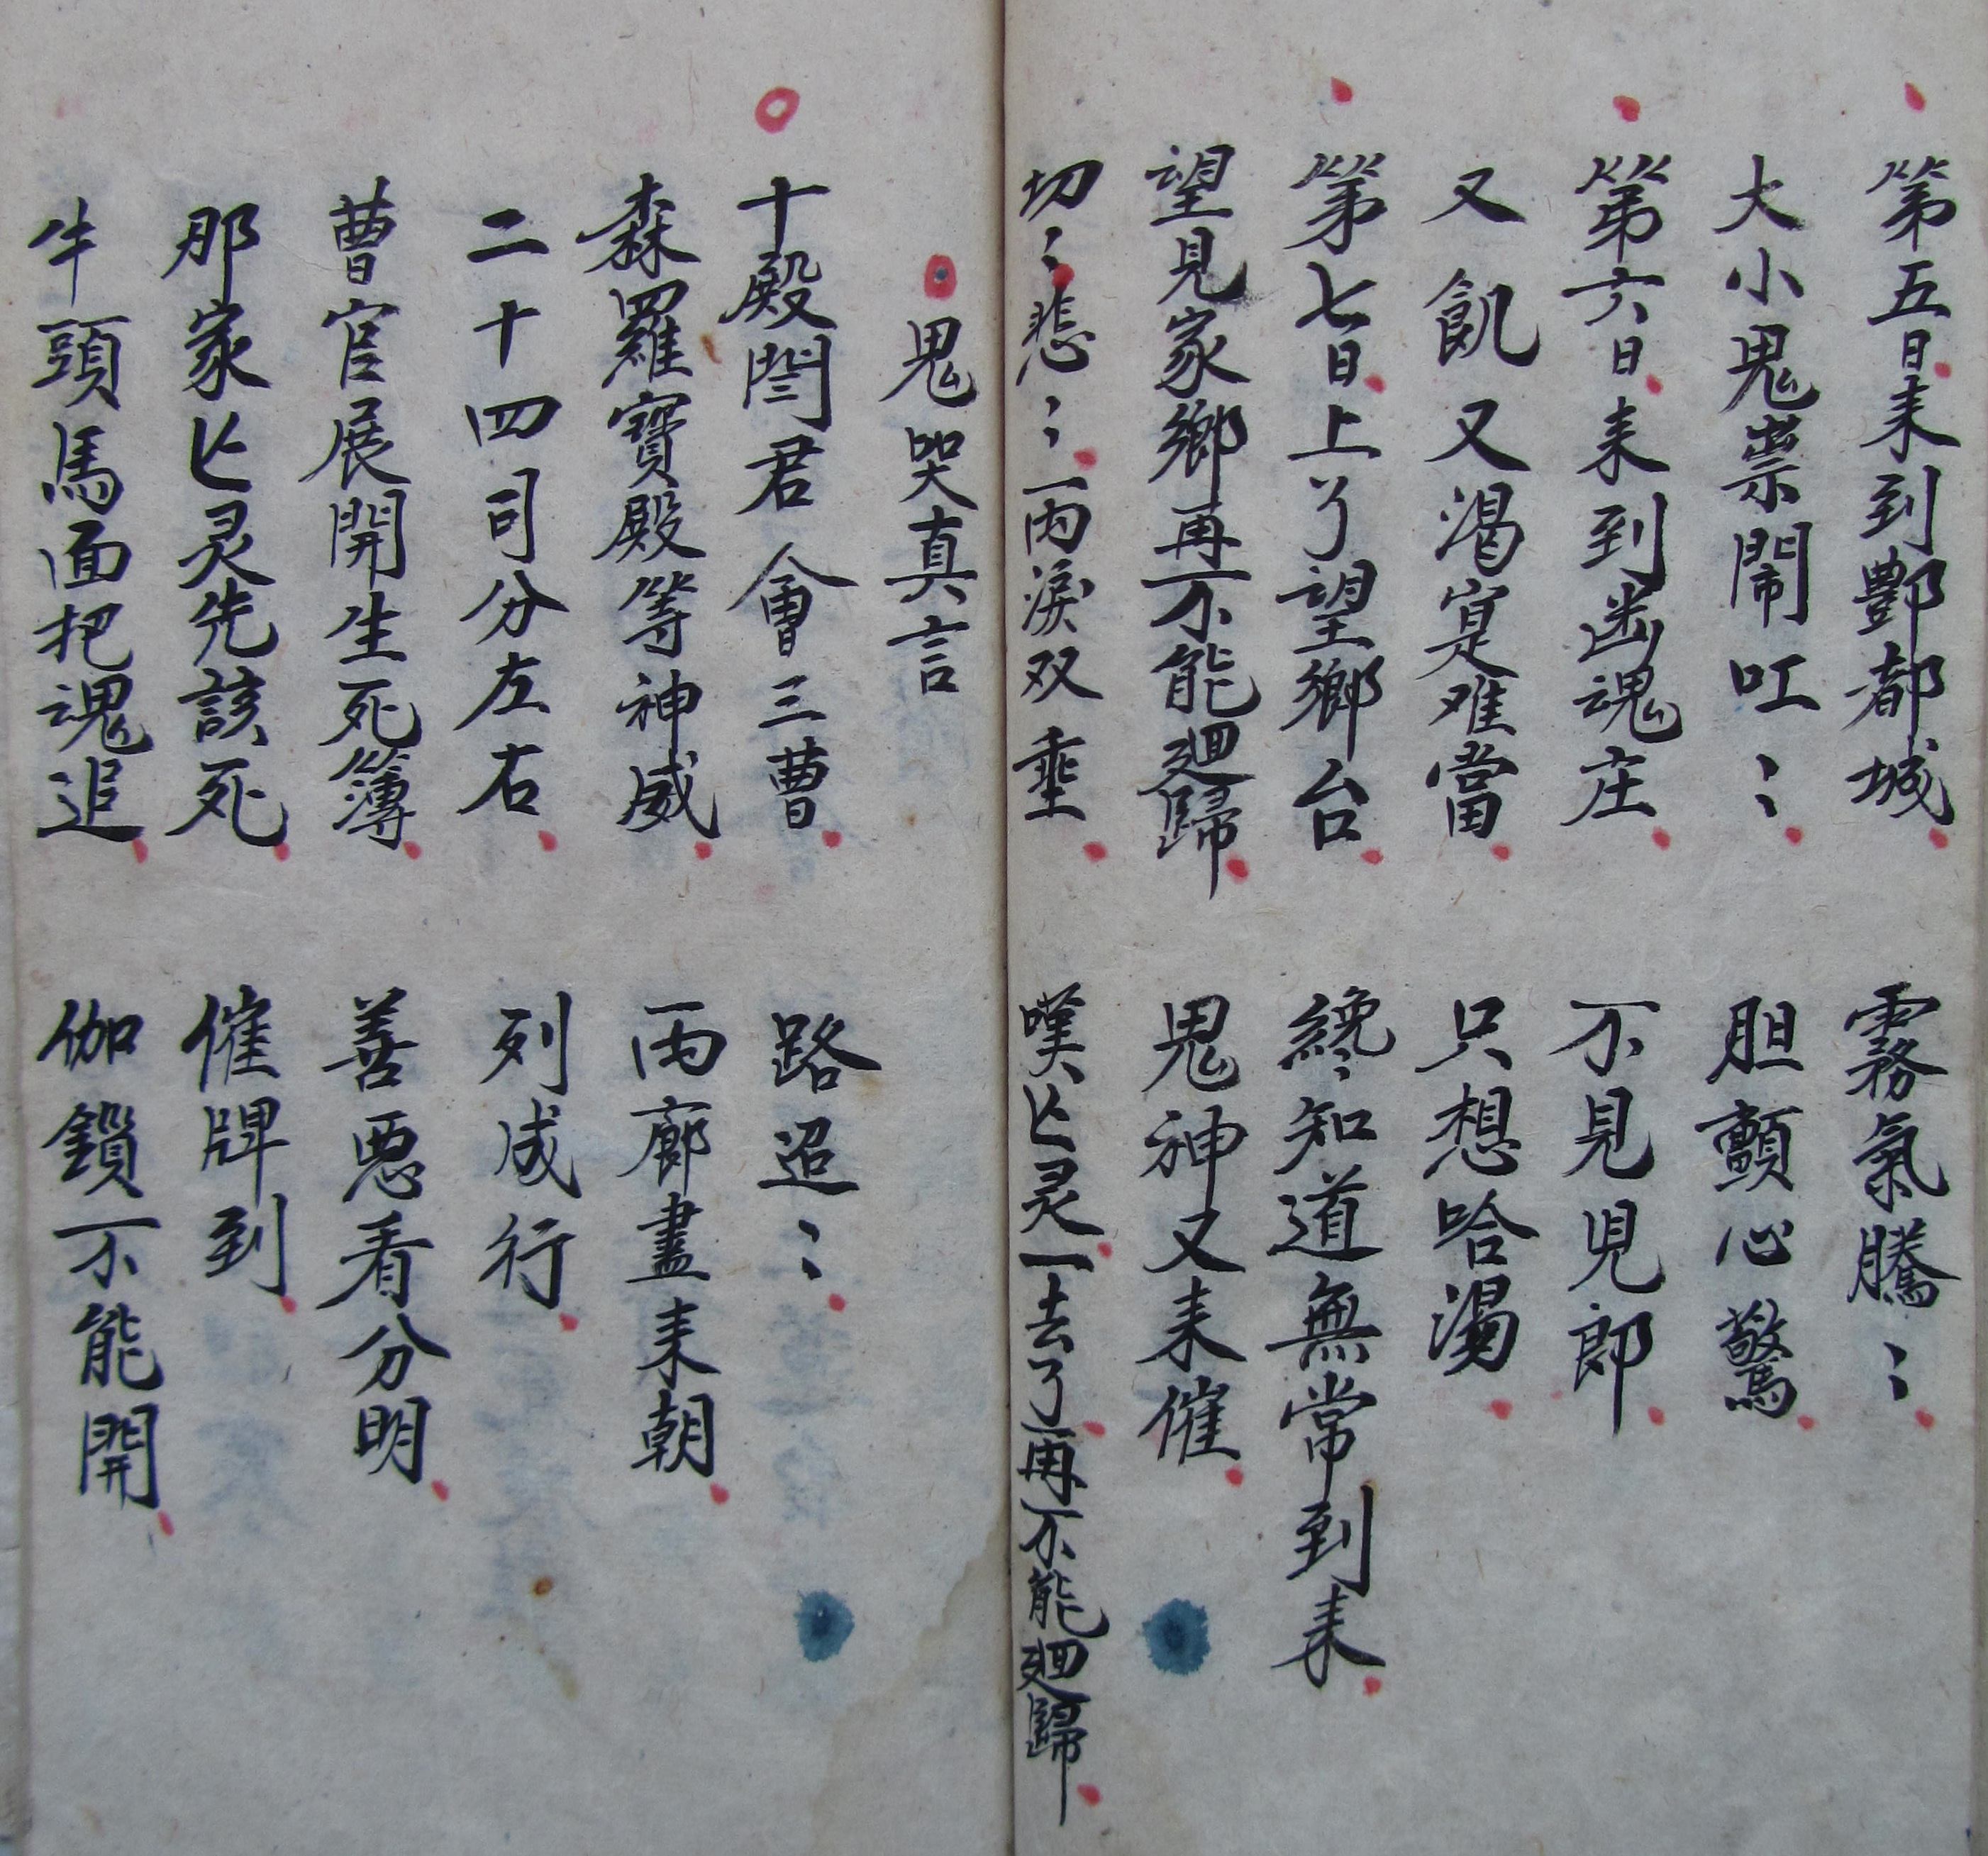 第五日来到酆都城　霧氣騰〻
大小鬼祟鬧吅〻　胆顫心驚
第六日来到幽魂庄　不見児郎
又飢又渴寔难當　只想哈湯
第七日上了望鄉台　纔知道無常到来
望見家鄉再不能廻歸　鬼神又来催
切〻悲〻両淚双垂　嘆亡灵一去了再不能廻歸
鬼哭真言
十殿閆君會三曹　路迢〻
森羅寶殿等神威　両廊盡来朝
二十四司分左右　列成行
曹官展開生死簿　善悪看分明
那家亡灵先該死　催牌到
牛頭馬面把魂追　伽鎖不能開